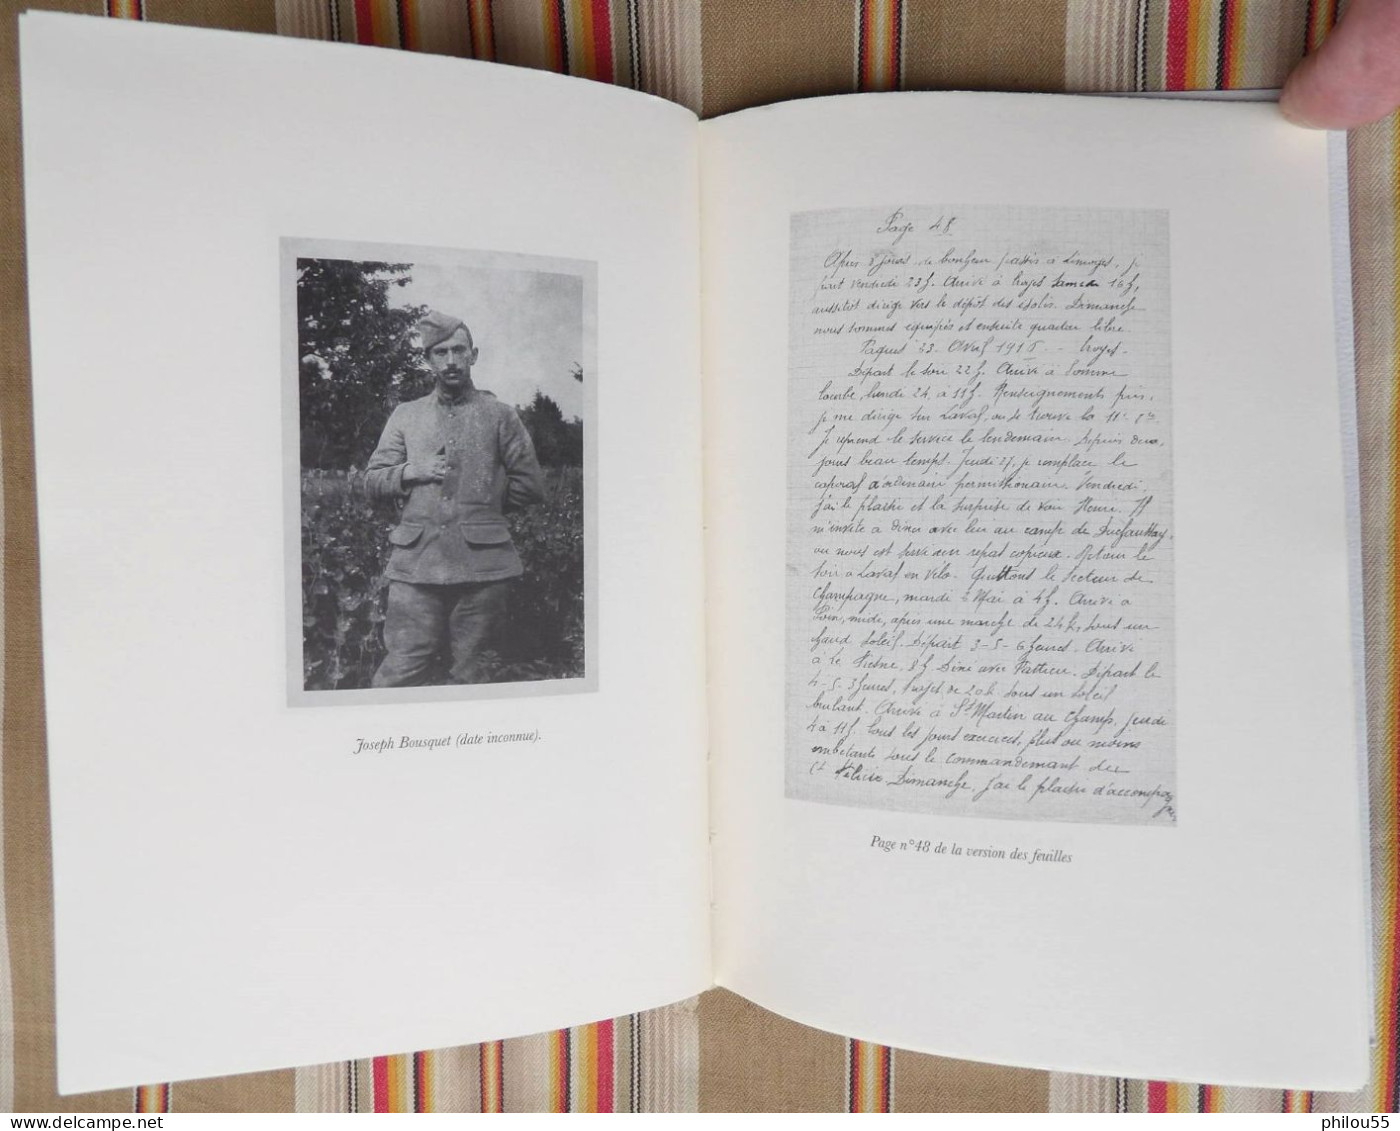 Joseph Bousquet (date inconnue).
Page 48
Après 8 jours de bonheur passés à Limoges, je
part vendredi 23h. Arrivé à troyes Samedi 16h,
aussitôt dirigé vers le dépôt des isolés. Dimanche
nous sommes équipés et ensuite quartier libre.
Paques 23 Avril 1916 - troyes.
Départ le soir 22h. Arrivé à Somme
tourbe, lundi 24, à 11h. Renseignements pris,
je me dirige sur Laval, ou se trouve la 11e Cie.
Je reprend le service le lendemain. Depuis deux
jours beau temps. Jeudi 27, je remplace le
caporal d'ordinaire permissionnaire. Vendredi,
j'ai le plaisir et la surprise de voir Henri. Il
m'invite a diner avec lui au camp de
ou nous est servi un repas copieux. Retour le
soir à Laval en vélo. Quittons le secteur de
Champagne, mardi 2 Mai à 4h. Arrivé a
midi, après une marche de 24k, sous un
chaud soleil. Départ 3-5- 6 heures. Arrivé
à Le 8h Diné avec Départ le
4-5. 3 heures, trajet de 20k sous un soleil
brulant. Arrivé à St Martin au Champ, jeudi
4 à 11h. tous les jours exercices, plus ou moins
embetants, sous le commandement du
Dimanche, j'ai le plaisir d'accompa
gner
Page n°48 de la version des feuilles
philou55